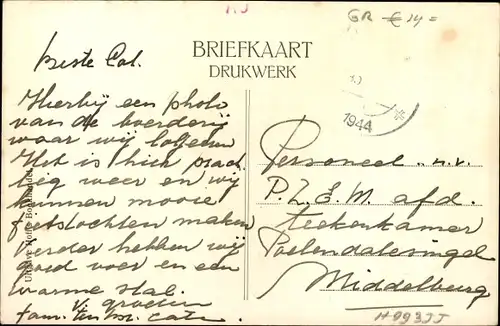 GR - € 14 =
BRIEFKAART
DRUKWERK
1944
Beste Col.
Hierbij een photo
van de boerderij
waar wij
Het is hier prach
tig weer en wij
kunnen mooie
fietstochten maken
Verder hebben wij
goed voer en een
warme stal.
V. groeten
fam.
Personeel n.v.
P.Z.E.M. afd.
teekenkamer
Poelendalesingel
Middelburg